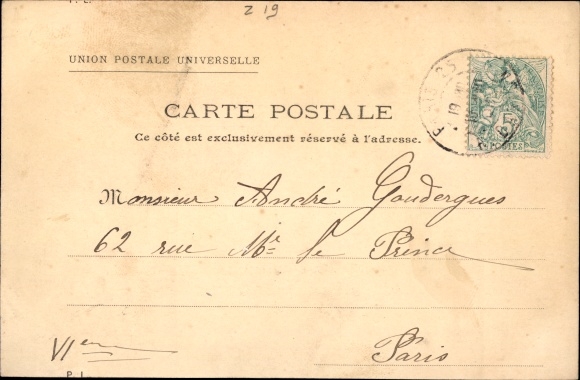 Z 19
UNION POSTALE UNIVERSELLE
CARTE POSTALE
Ce côté est exclusivement réservé à l'adresse.
PARIS 25
POSTES
Monsieur André Goudergues
62 rue Mr le Prince
VIème
Paris